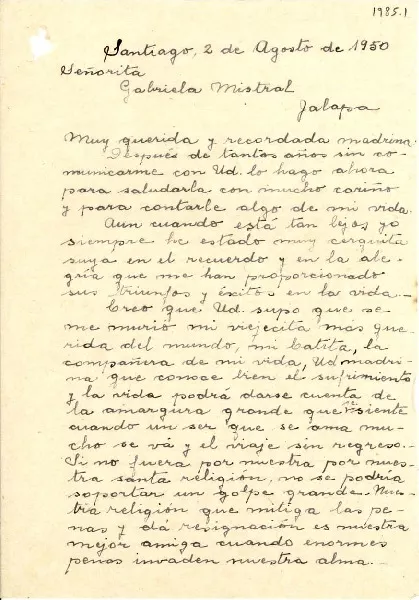 1985.1
Santiago, 2 de Agosto de 1950
Señorita
Gabriela Mistral
Jalapa
Muy querida y recordada madrina.
Después de tantos años sin co-
municarme con Ud. lo hago ahora
para saludarla con mucho cariño
y para contarle algo de mi vida.
Aun cuando está tan lejos yo
siempre he estado muy cerquita
suya en el recuerdo y en la ale-
gría que me han proporcionado
sus triunfos y éxitos en la vida.-
Creo que Ud. supo que se
me murió mi viejecita mas que-
rida del mundo, mi Catita, la
compañera de mi vida, Ud madri-
na que conoce bien el sufrimiento
y la vida podrá darse cuenta de
la amargura grande que se siente
cuando un ser que se ama mu-
cho se vá y el viaje sin regreso.-
Si no fuera por nuestra por nues-
tra santa religión, no se podría
soportar un golpe grande. Nues-
tra religión que mitiga las pe-
nas y dá resignación es nuestra
mejor amiga cuando enormes
penas invaden nuestra alma.-